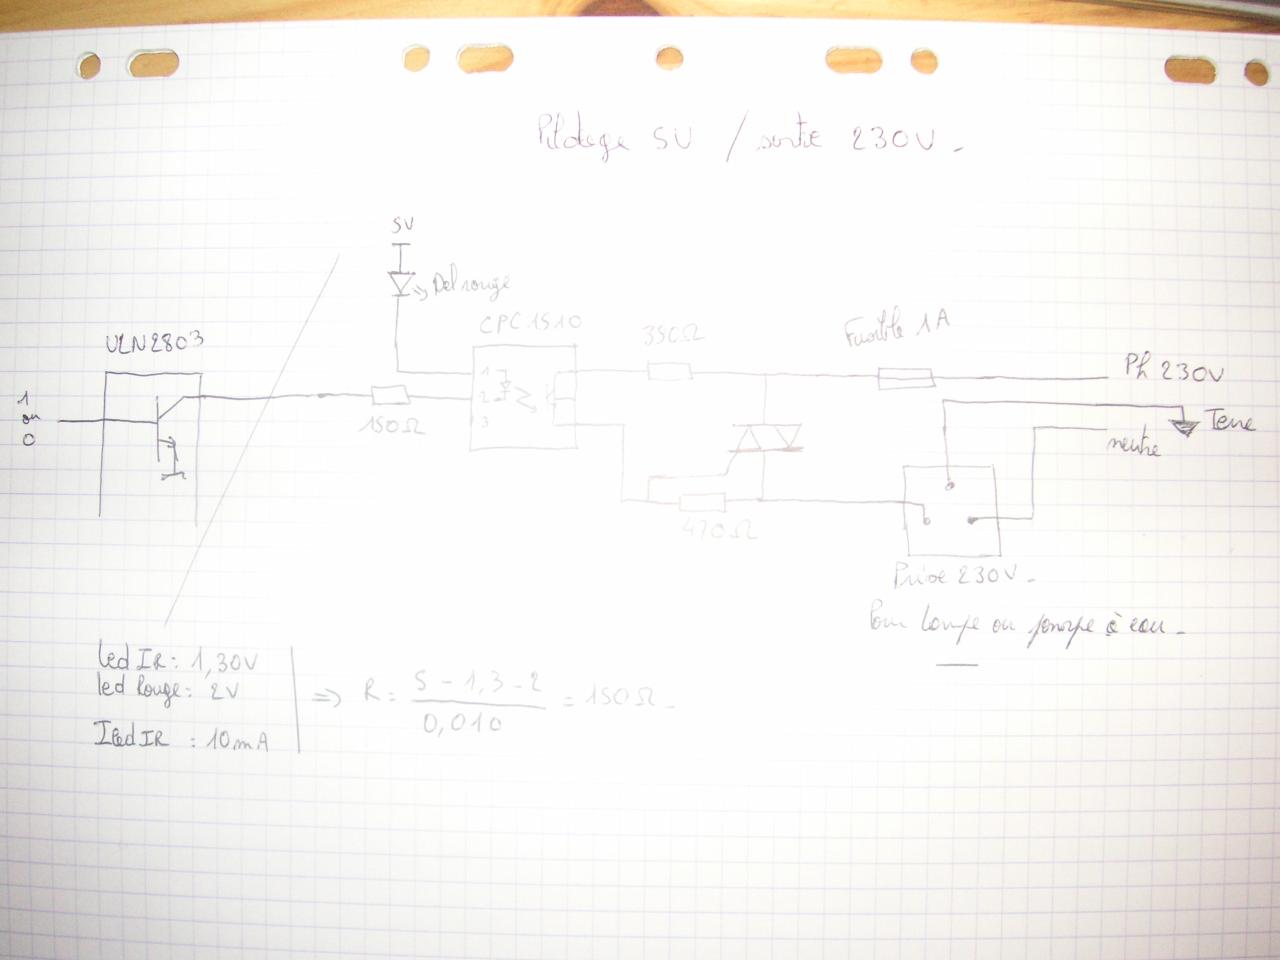 Pilotage 5V / sortie 230V -
5V
Del rouge
ULN2803
CPC1510
1
ou
0
150Ω
1
2
3
330Ω
Fusible 1A
Ph 230V
Terre
neutre
470Ω
Prise 230V -
Pour lampe ou pompe à eau -
led IR : 1,30V
led Rouge : 2V
Iled IR : 10mA
=> R = 5 - 1,3 - 2 / 0,010 = 150Ω -